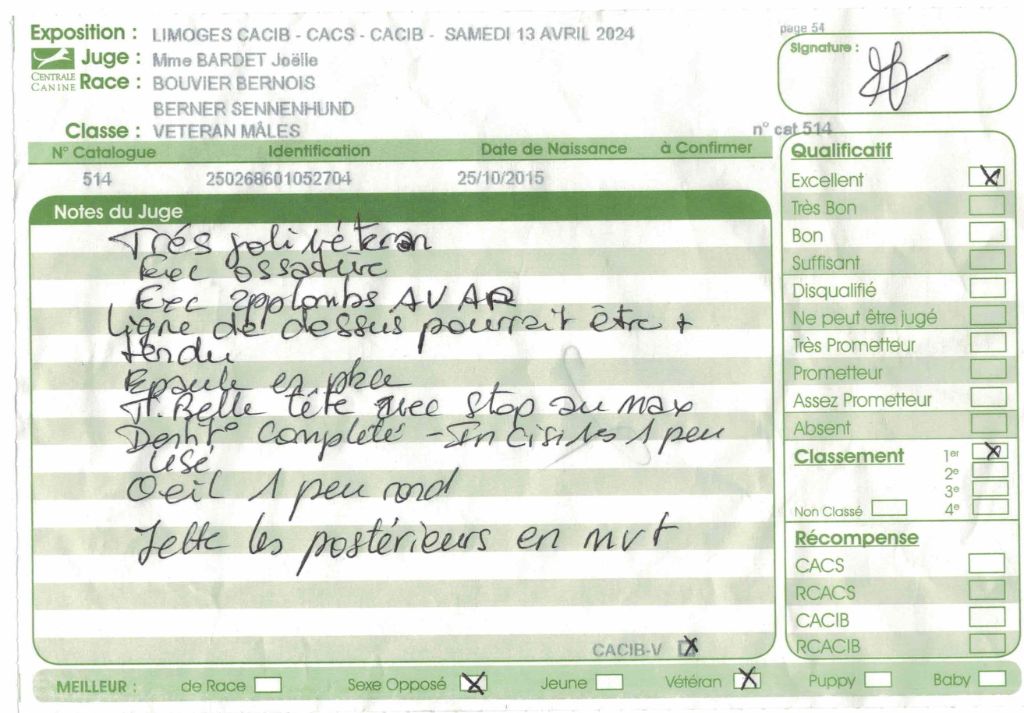 Exposition : LIMOGES CACIB - CACS - CACIB - SAMEDI 13 AVRIL 2024
page 54
Signature :
Juge : Mme BARDET Joëlle
CENTRALE CANINE
Race : BOUVIER BERNOIS
BERNER SENNENHUND
Classe : VETERAN MÂLES
n° cat 514
N° Catalogue Identification Date de Naissance à Confirmer
514 250268601052704 25/10/2015
Notes du Juge
Trés joli véteran
Exc ossature
Exc applombs AV AR
Ligne de dessus pourrait être +
tendu
Epaule en place
T. Belle tête avec stop au max
Dentn° complété - Incisives 1 peu
usé
Oeil 1 peu rond
Jette les postérieurs en mvt
CACIB-V
Qualificatif
Excellent
Très Bon
Bon
Suffisant
Disqualifié
Ne peut être jugé
Très Prometteur
Prometteur
Assez Prometteur
Absent
Classement 1er
2e
3e
Non Classé 4e
Récompense
CACS
RCACS
CACIB
RCACIB
MEILLEUR : de Race Sexe Opposé Jeune Vétéran Puppy Baby